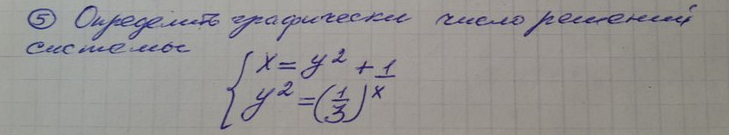 ⑤ Определить графически число решений
системы
{ x = y² + 1
y² = (1/3)ˣ